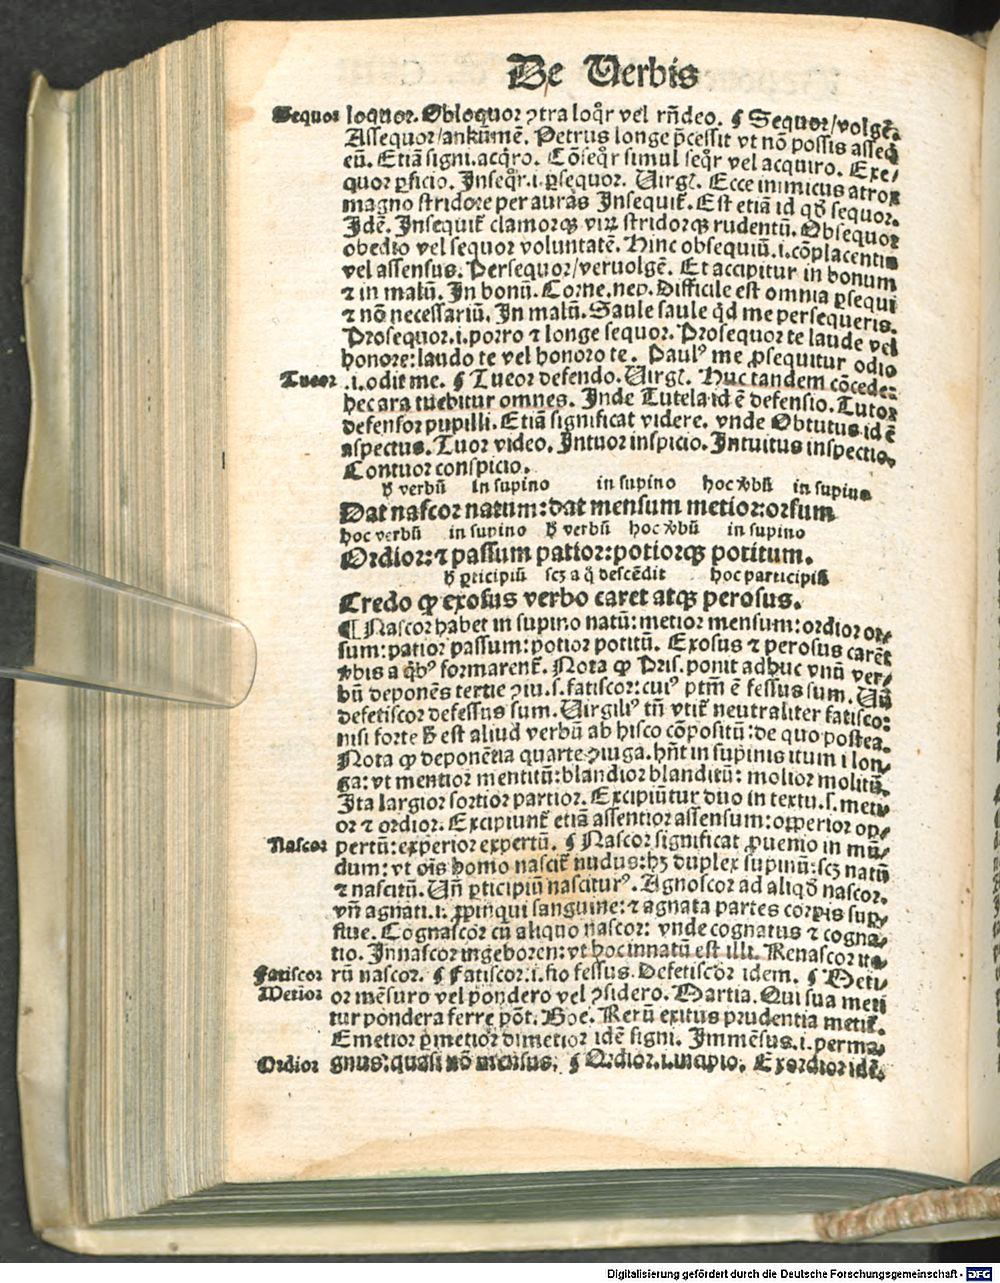 De Verbis
Sequor loquor. Obloquor ꝯtra loqͬr vel rñdeo. ¶ Sequor/volgē.
Assequor/ankūmē. Petrus longe p̄cessit vt nō possis asseq̄
eū. Etiā signi. acq̇ro. Cōseqͬr simul seqͬr vel acquiro. Exe/
quor ꝑficio. Inseqͬr .i. ꝑsequor. Virgꝉ. Ecce inimicus atrox
magno stridore per auras Insequiť. Est etiā id qđ sequor.
Idē. Insequiť clamorqꝫ virꝝ stridorqꝫ rudentū. Obsequor
obedio vel sequor voluntatē. Hinc obsequiū .i. cōplacentia
vel assensus. Persequor/veruolgē. Et accipitur in bonum
⁊ in malū. In bonū. Corne. nep. Difficile est omnia ꝑsequi
⁊ nō necessariū. In malū. Saule saule q̇d me persequeris.
Prosequor .i. porro ⁊ longe sequor. Prosequor te laude vel
honore: laudo te vel honoro te. Paulꝰ me ꝓsequitur odio
Tueor .i. odit me. ¶ Tueor defendo. Virgꝉ. Huc tandem cōcede:
hec ara tuebitur omnes. Inde Tutela id ē defensio. Tutor
defensor pupilli. Etiā significat videre. vnde Obtutus id ē
aspectus. Tuor video. Intuor inspicio. Intuitus inspectio.
Contuor conspicio.
ħ verbū in supino in supino hoc v̄bū in supino
Dat nascor natum: dat mensum metior: orsum
hoc verbū in supino ħ verbū hoc v̄bū in supino
Ordior: ⁊ passum patior: potiorqꝫ potitum.
ħ ꝑticipiū scꝫ a q̊ descēdit hoc participiū
Credo ꝙ exosus verbo caret atqꝫ perosus.
¶ Nascor habet in supino natū: metior mensum: ordior or/
sum: patior passum: potior potitū. Exosus ⁊ perosus carēt
v̄bis a q̇bꝰ formarenť. Nota ꝙ Pris. ponit adhuc vnū ver/
bū deponēs tertie ꝯiu. s. fatiscor: cuiꝰ ptm̄ ē fessus sum. Vñ
defetiscor defessus sum. Virgiliꝰ tñ vtiť neutraliter fatisco:
nisi forte ħ est aliud verbū ab hisco cōpositū: de quo postea.
Nota ꝙ deponētia quarte ꝯiuga. hñt in supinis itum i lon/
ga: vt mentior mentitū: blandior blanditū: molior molitū.
Ita largior sortior partior. Excipiūtur duo in textu. s. meti/
or ⁊ ordior. Excipiunť etiā assentior assensum: opperior op/
Nascor pertū: experior expertū. ¶ Nascor significat ꝓuenio in mū/
dum: vt oīs homo nasciť nudus: hꝫ duplex supinū: scꝫ natū
⁊ nascitū. Vñ ꝑticipiū nasciturꝰ. Agnoscor ad aliqđ nascor.
vñ agnati .i. ꝓpinqui sanguine: ⁊ agnata partes corpis sup/
flue. Cognascor cū aliquo nascor: vnde cognatus ⁊ cogna/
tio. Innascor ingeboren: vt hoc innatū est illi. Renascor ite/
Fatiscor rū nascor. ¶ Fatiscor .i. fio fessus. Defetiscor idem. ¶ Meti/
Metior or mēsuro vel pondero vel ꝯsidero. Martia. Qui sua meti
tur pondera ferre pōt. Boe. Rerū exitus prudentia metiť.
Emetior ꝑmetior dimetior idē signi. Immēsus .i. perma/
Ordior gnus: quasi nō mensus. ¶ Ordior .i. incipio. Exordior idē.
Digitalisierung gefördert durch die Deutsche Forschungsgemeinschaft - DFG